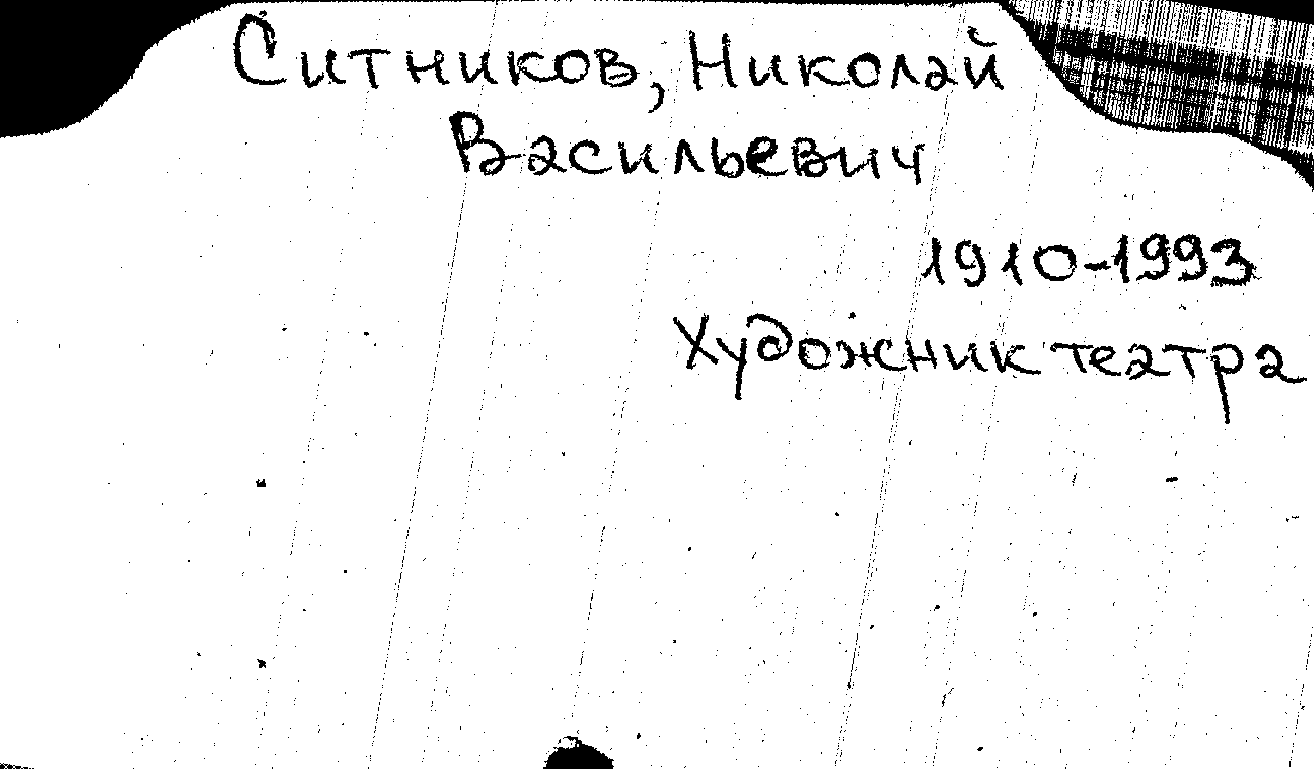 Ситников, Николай
Васильевич
1910-1993
Художник театра